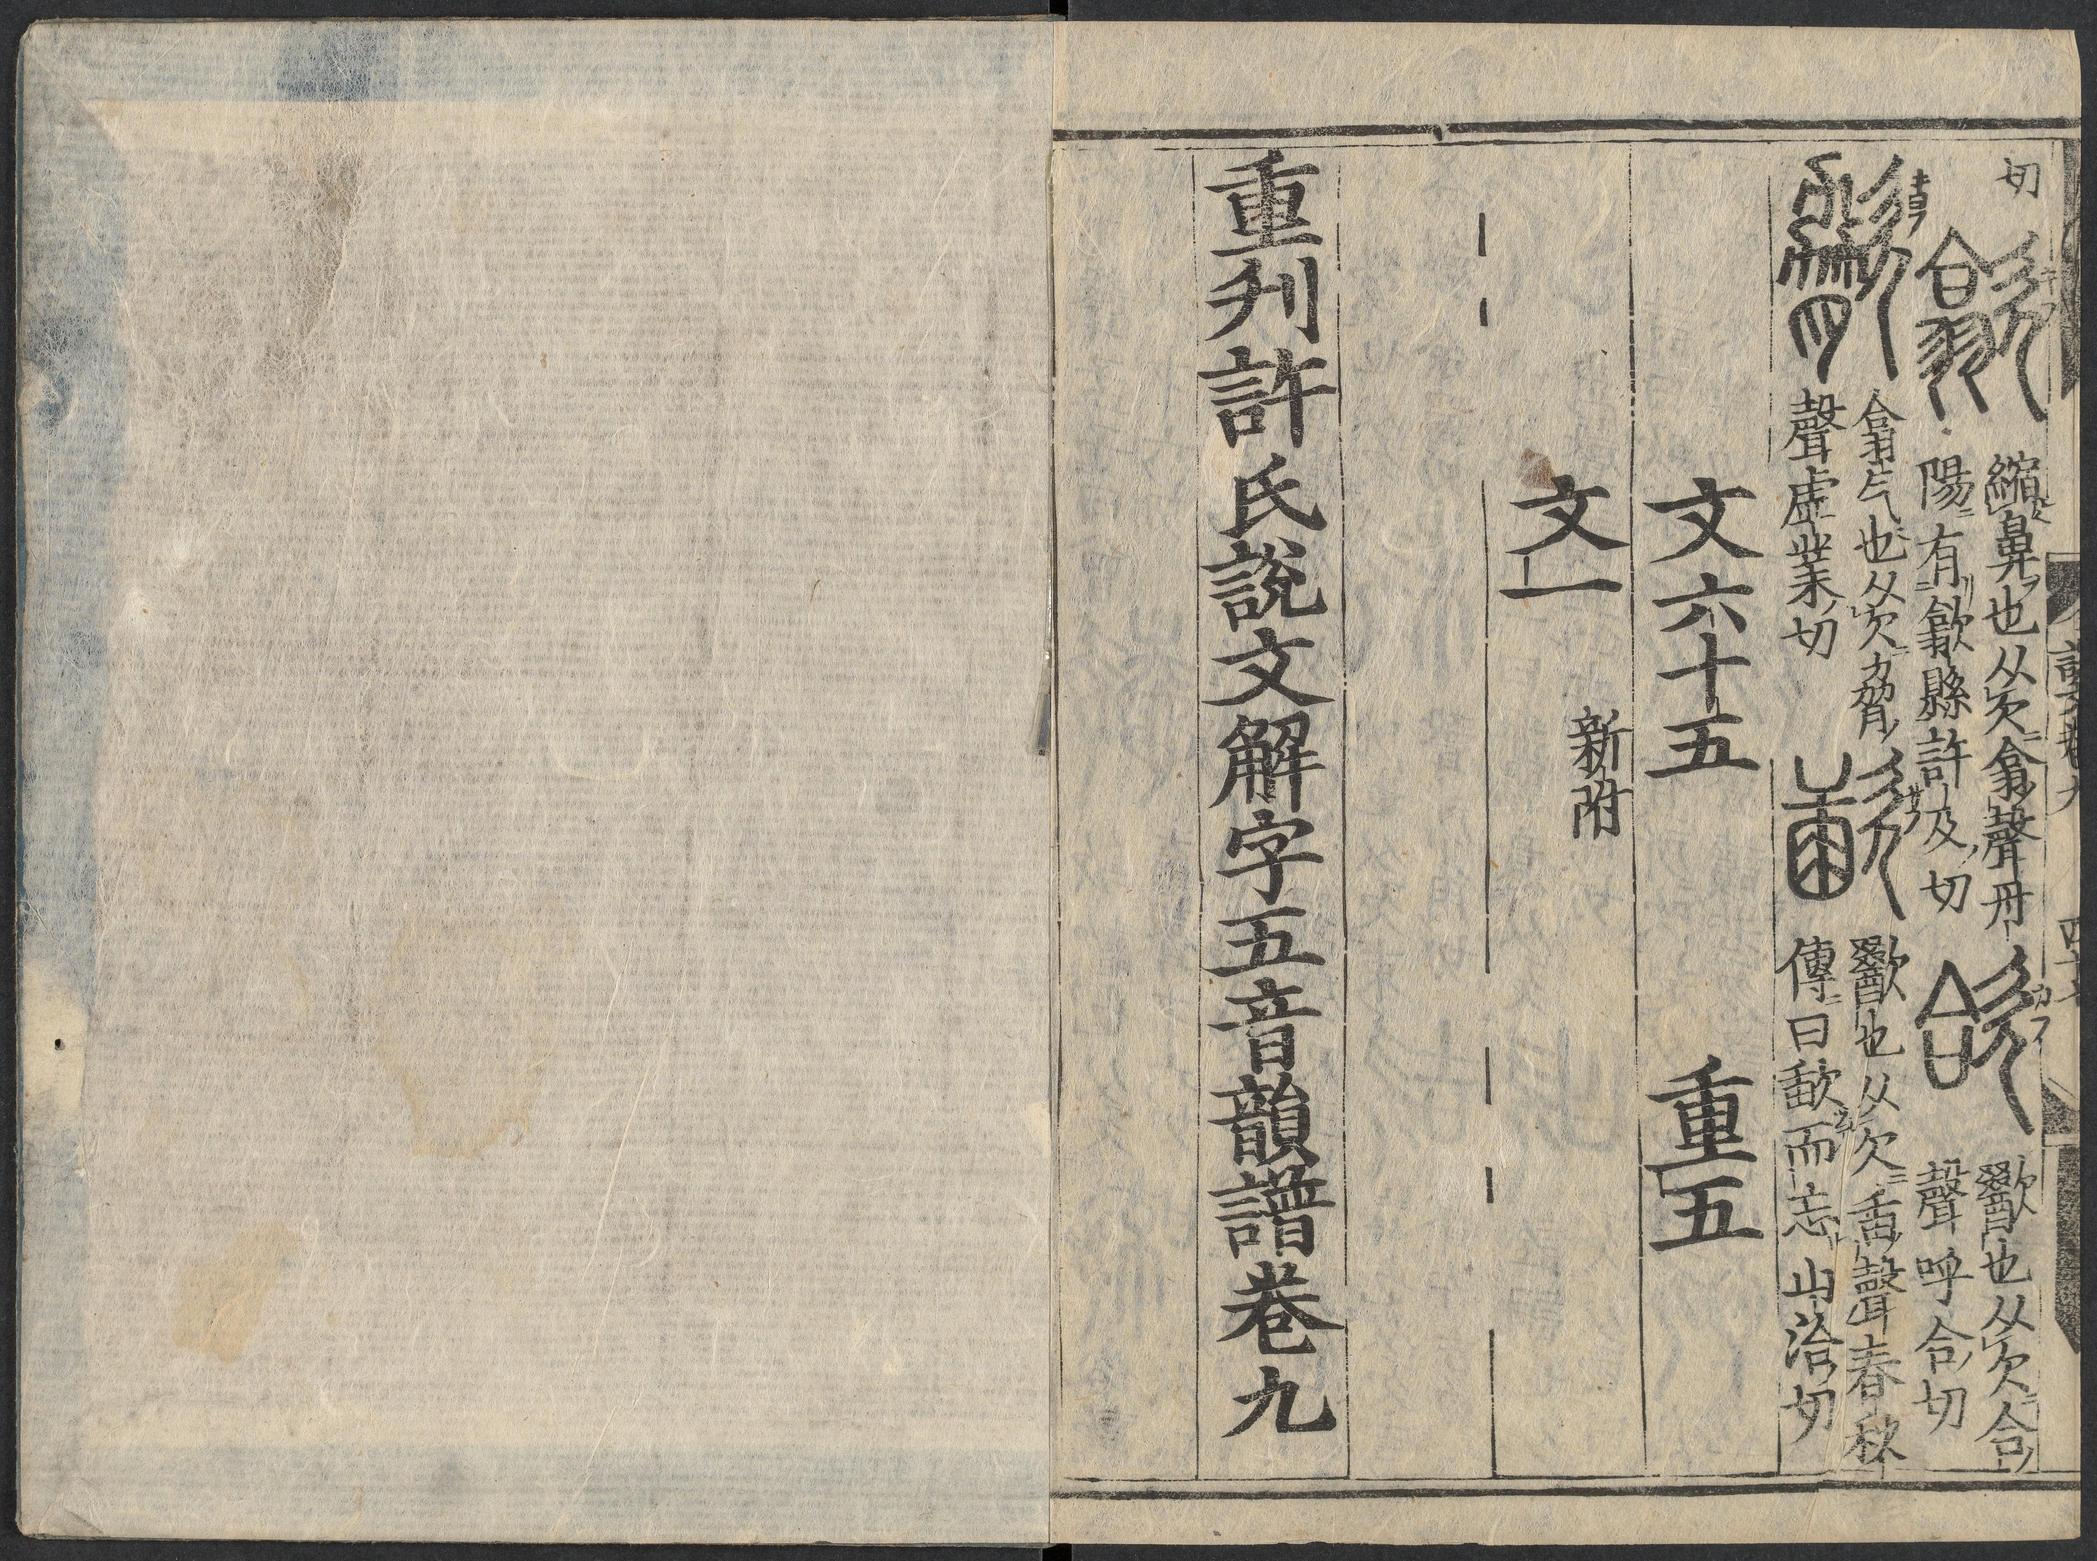 切
歙
縮鼻也从欠翕聲丹
陽有歙縣許及切
欱
歠也从欠合
聲呼合切
翕气也从欠脅
聲虛業切
歃
歠也从欠臿聲春秋
傳曰歃而忘山洽切
文六十五 重五
文一 新附
重刋許氏說文解字五音韻譜卷九